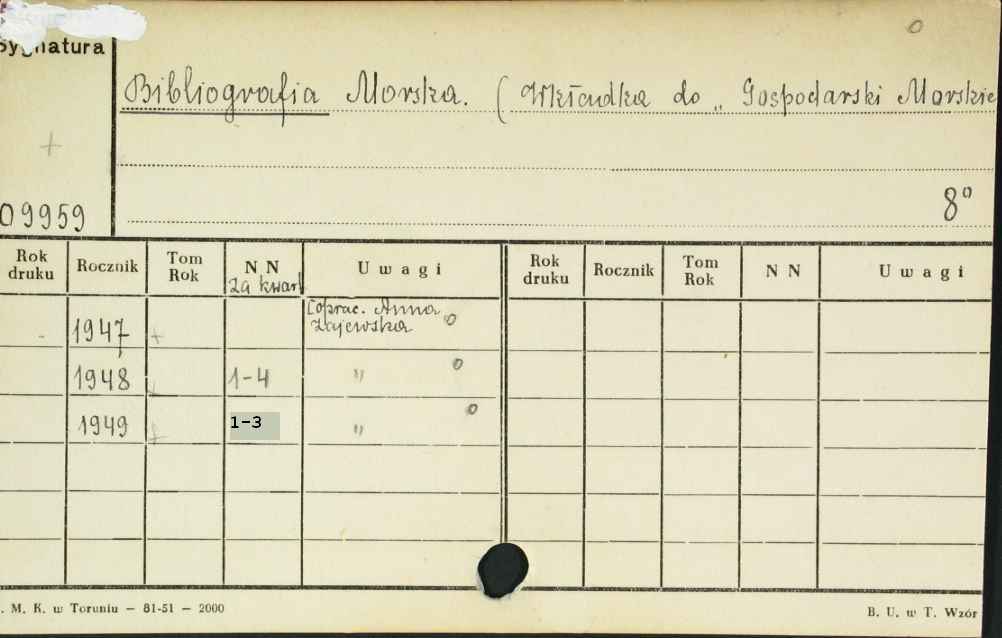 o
Sygnatura
Bibliografia Morska. (Wkładka do „Gospodarski Morskie
+
8°
09959
Rok druku Rocznik Tom Rok N N za kwart Uwagi Rok druku Rocznik Tom Rok N N Uwagi
- 1947 + [oprac. Anna Zajewska o
1948 + 1-4 " o
1949 + 1-3 " o
. M. K. w Toruniu — 81-51 — 2000
B. U. w T. Wzór